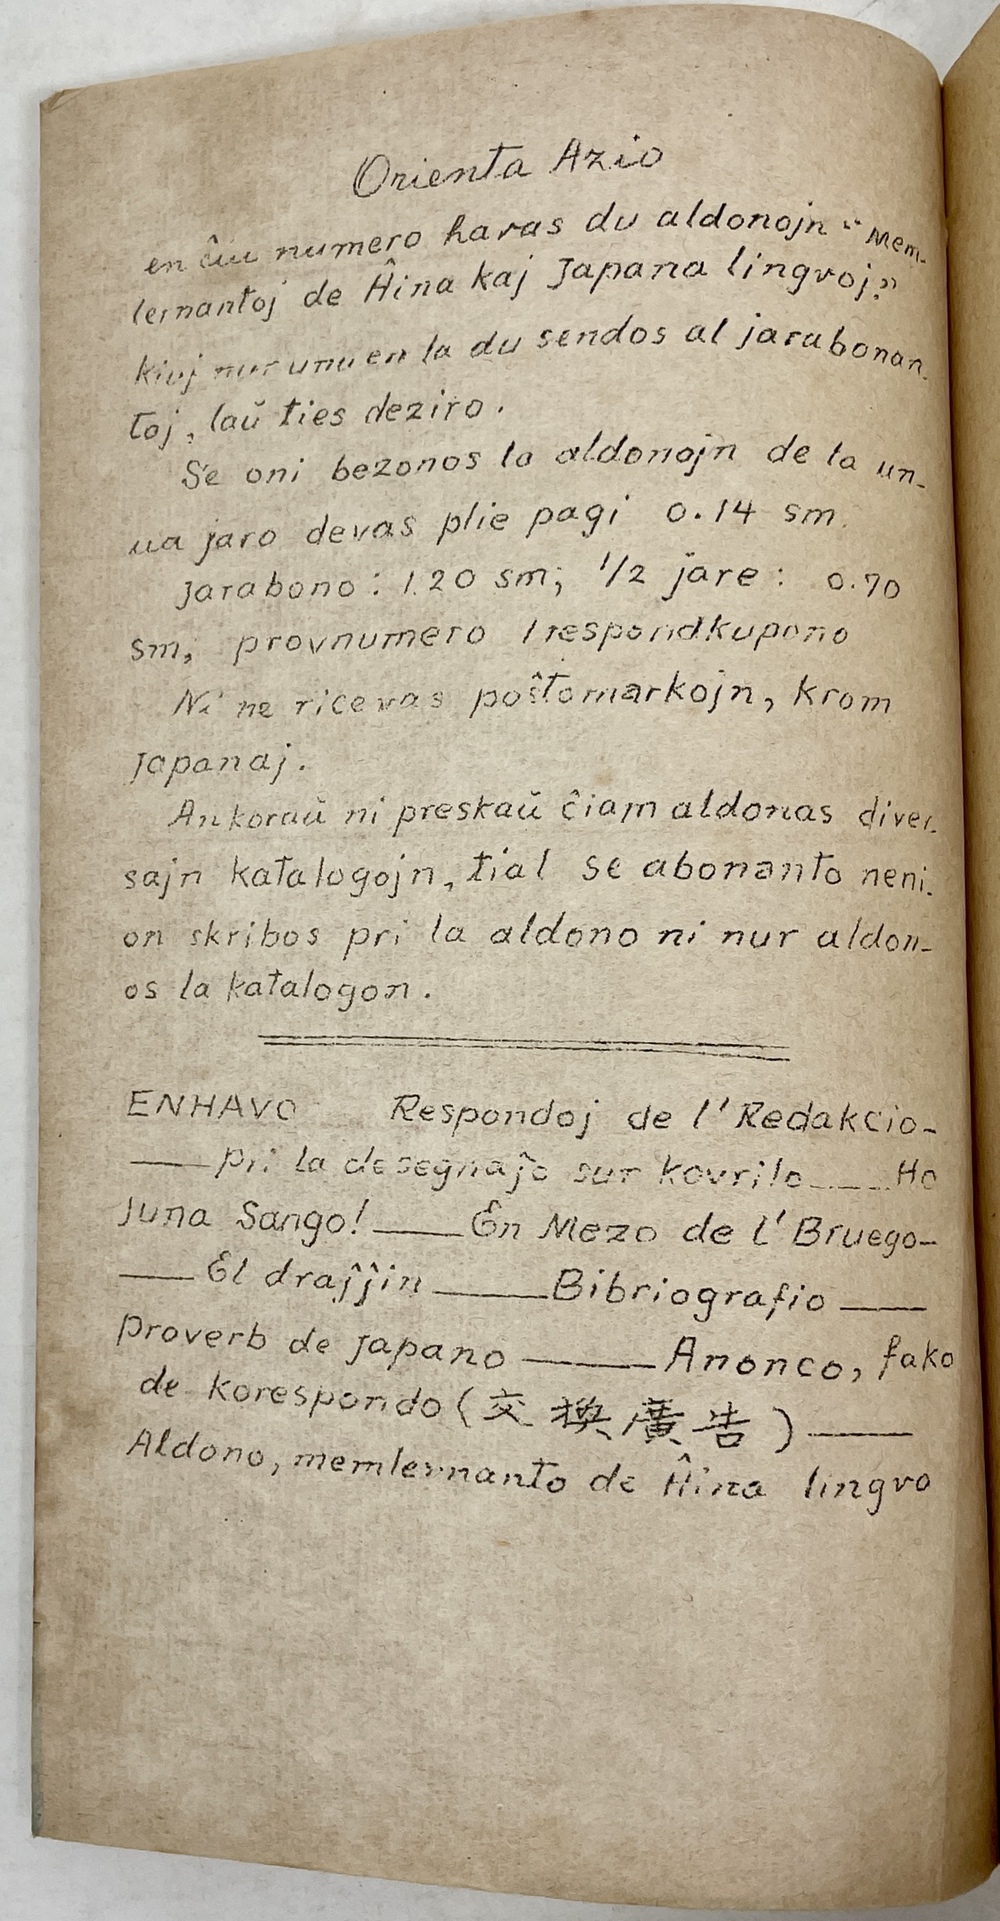 Orienta Azio
en ĉiu numero havas du aldonojn "Mem-
lernantoj de Ĥina kaj Japana lingvoj."
kiuj nur unu en la du sendos al jarabonan-
toj, laŭ ties deziro.
Se oni bezonos la aldonojn de la un-
ua jaro devas plie pagi 0.14 sm.
Jarabono: 1.20 sm; 1/2 jare: 0.70
sm, provnumero 1 respondkupono
Ni ne ricevas poŝtomarkojn, krom
Japanaj.
Ankoraŭ ni preskaŭ ĉiam aldonas diver-
sajn katalogojn, tial se abonanto neni-
on skribos pri la aldono ni nur aldon-
os la katalogon.
ENHAVO Respondoj de l' Redakcio-
—— pri la desegnaĵo sur kovrilo —— Ho
Juna Sango! —— En Mezo de l' Bruego-
—— El draĵĵin —— Bibriografio ——
Proverb de Japano —— Anonco, fako
de korespondo (交換廣告) ——
Aldono, memlernanto de Ĥina lingvo